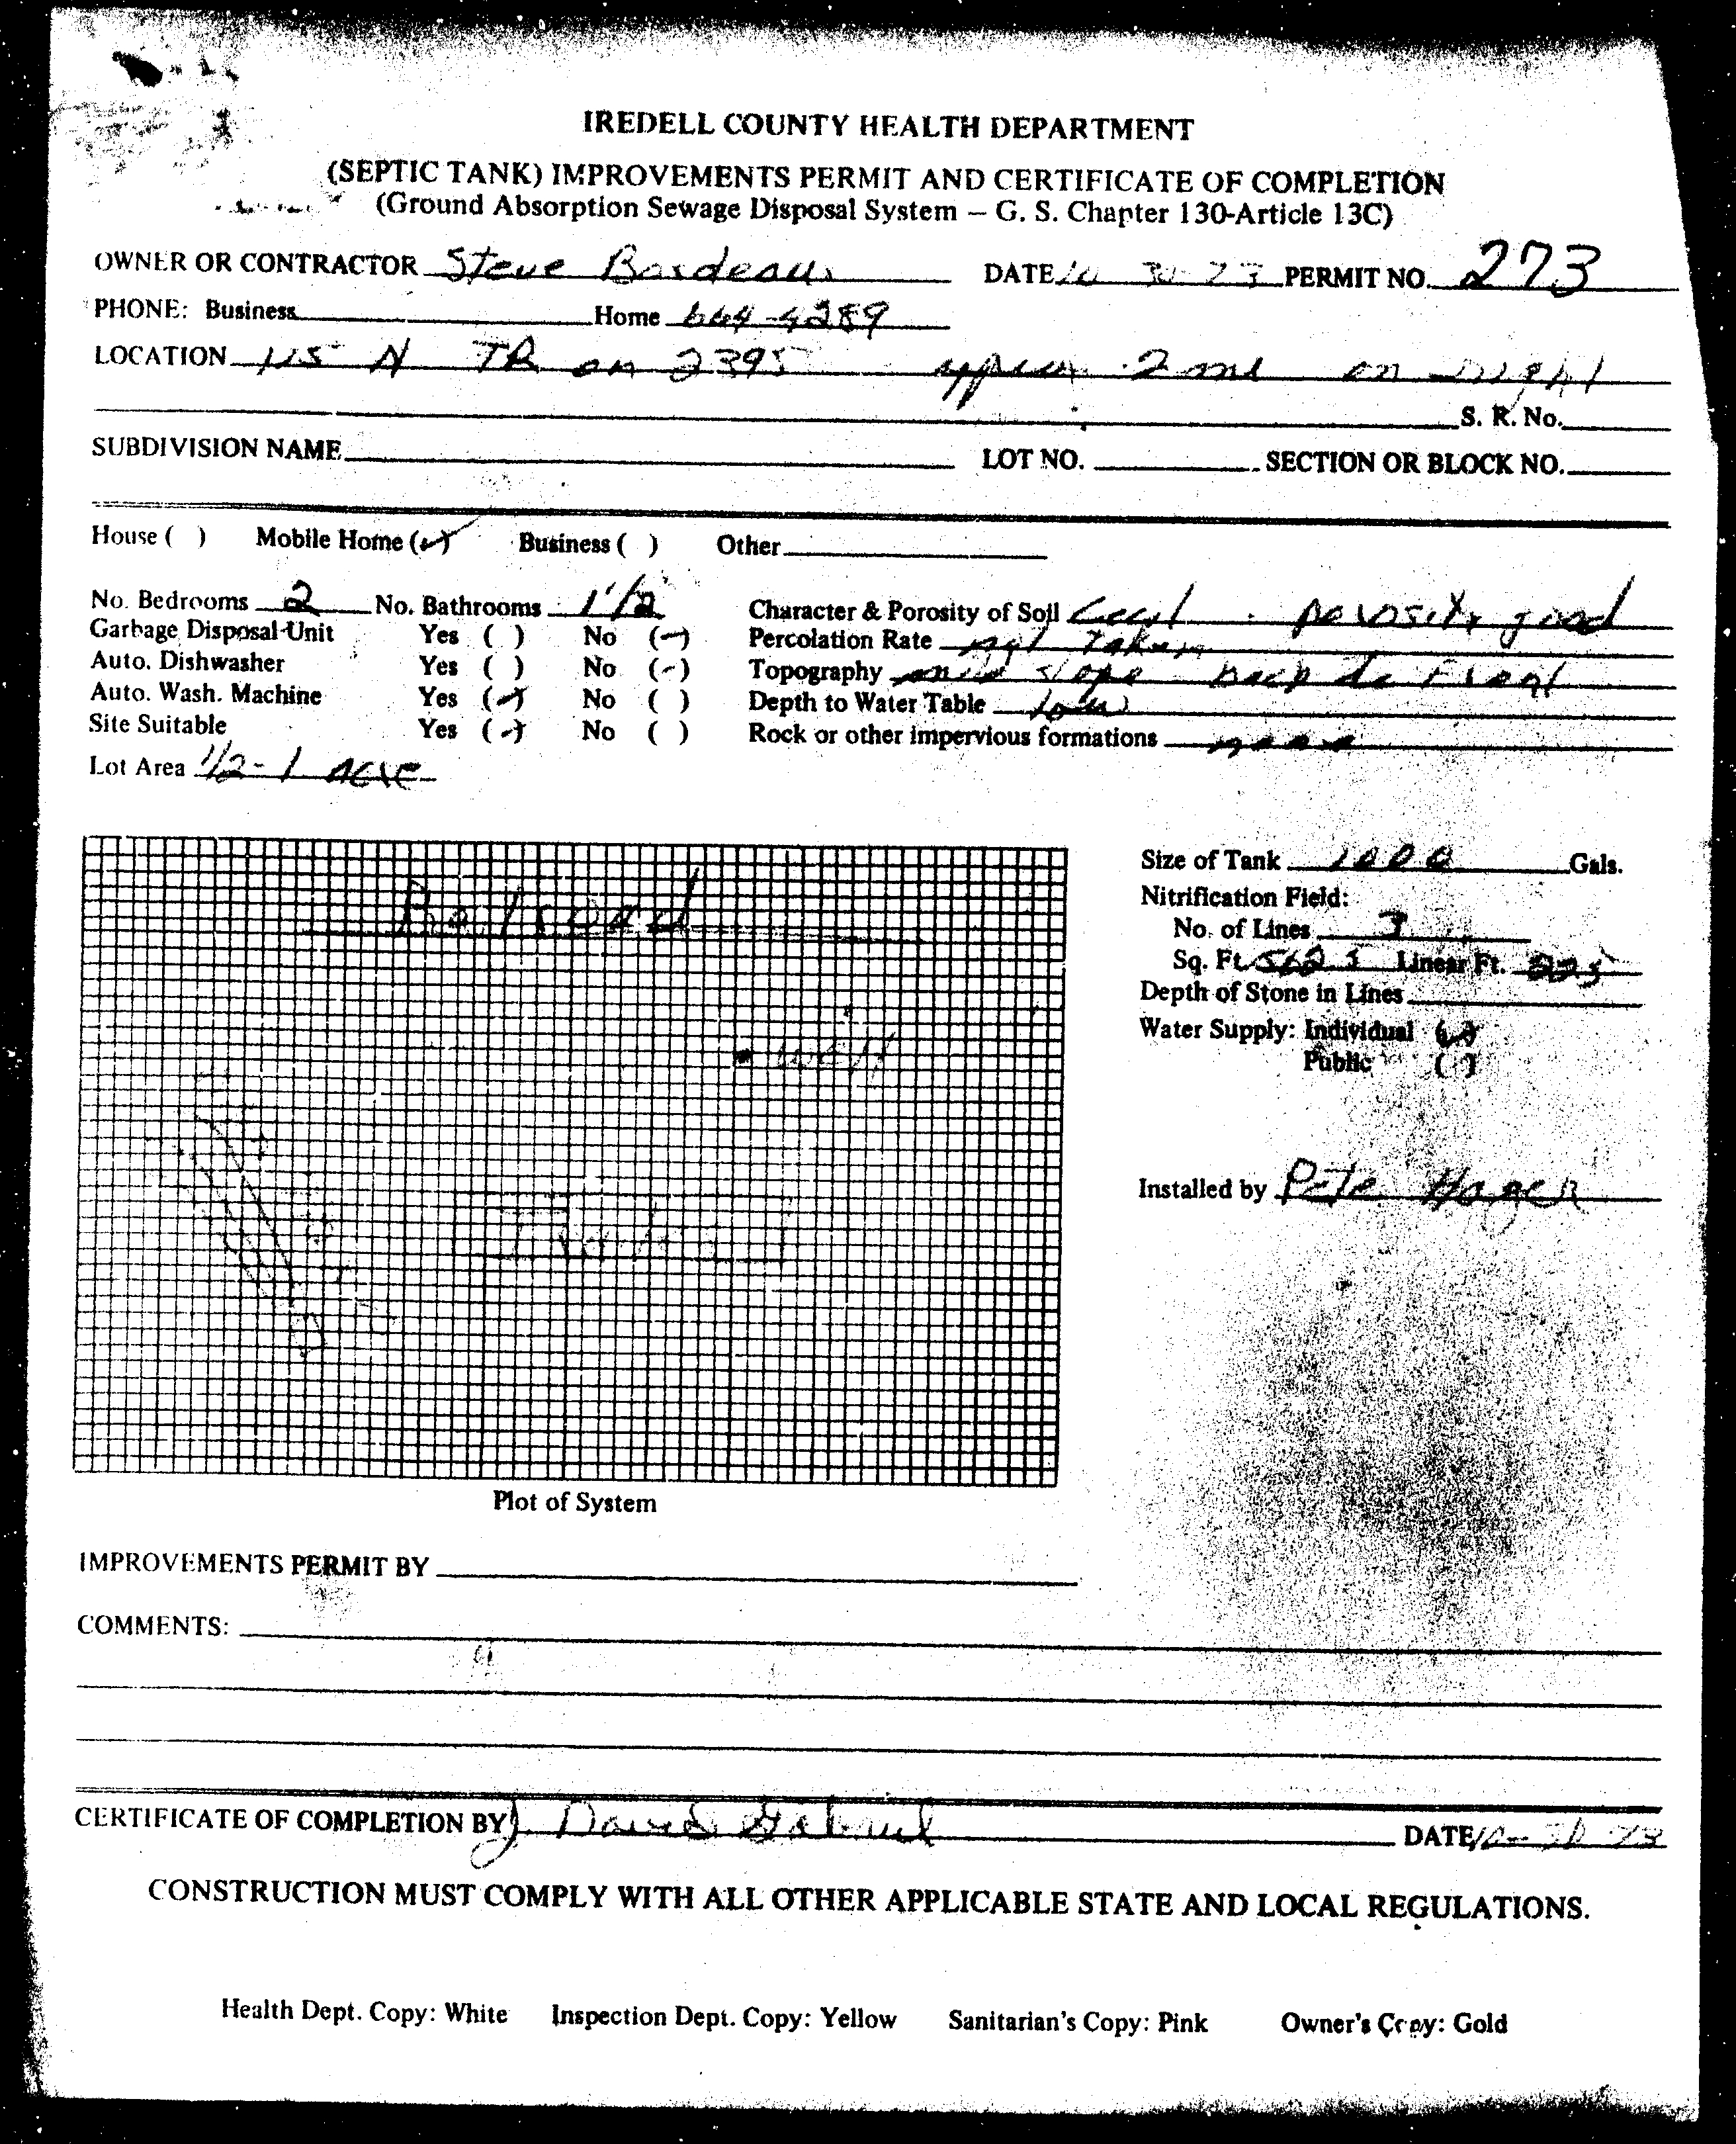 IREDELL COUNTY HEALTH DEPARTMENT
(SEPTIC TANK) IMPROVEMENTS PERMIT AND CERTIFICATE OF COMPLETION
(Ground Absorption Sewage Disposal System – G. S. Chapter 130-Article 13C)
OWNER OR CONTRACTOR Steve DATE PERMIT NO. 273
PHONE: Business Home 664-4289
LOCATION 115 N TR on 2395 approx .2 mi on right
S. R. No.
SUBDIVISION NAME LOT NO. SECTION OR BLOCK NO.
House ( ) Mobile Home (✓) Business ( ) Other
No. Bedrooms 2 No. Bathrooms 1 1/2 Character & Porosity of Soil Cecil - porosity good
Garbage Disposal Unit Yes ( ) No (-) Percolation Rate not taken
Auto. Dishwasher Yes ( ) No (-) Topography slope back to Front
Auto. Wash. Machine Yes (✓) No ( ) Depth to Water Table low
Site Suitable Yes (✓) No ( ) Rock or other impervious formations none
Lot Area 1/2 - 1 Acre
Railroad
Well
Size of Tank 1000 Gals.
Nitrification Field:
No. of Lines 3
Sq. Ft. 562.5 Linear Ft. 225
Depth of Stone in Lines
Water Supply: Individual (✓)
Public ( )
Installed by Pete Hager
Plot of System
IMPROVEMENTS PERMIT BY
COMMENTS:
CERTIFICATE OF COMPLETION BY J. David Gabriel DATE
CONSTRUCTION MUST COMPLY WITH ALL OTHER APPLICABLE STATE AND LOCAL REGULATIONS.
Health Dept. Copy: White Inspection Dept. Copy: Yellow Sanitarian's Copy: Pink Owner's Copy: Gold